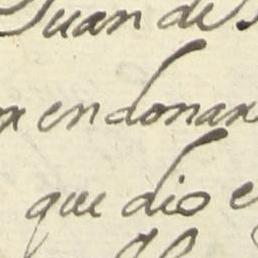 Juan de
en donar
que dio